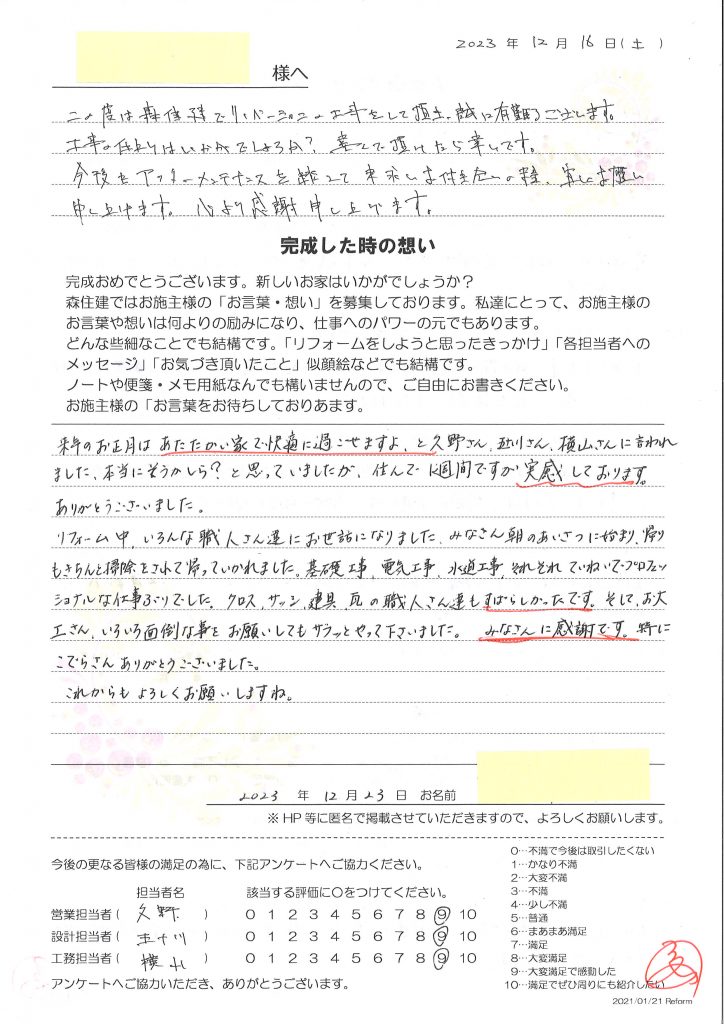 2023 年 12 月 16 日(土)
様へ
この度は森住建でリノベーションの工事をして頂き、誠に有難うございます。
工事の仕上りはいかがでしょうか？喜んで頂けたら幸いです。
今後もアフターメンテナンスを
申し上げます。心より感謝申し上げます。
完成した時の想い
完成おめでとうございます。新しいお家はいかがでしょうか？
森住建ではお施主様の「お言葉・想い」を募集しております。私達にとって、お施主様の
お言葉や想いは何よりの励みになり、仕事へのパワーの元でもあります。
どんな些細なことでも結構です。「リフォームをしようと思ったきっかけ」「各担当者への
メッセージ」「お気づき頂いたこと」似顔絵などでも結構です。
ノートや便箋・メモ用紙なんでも構いませんので、ご自由にお書きください。
お施主様の「お言葉をお待ちしておりあます。
来年のお正月は あたたかい家で快適に過ごせますよ、と久野さん、玉川さん、横山さんに言われ
ました、本当にそうかしら？と思っていましたが、住んで1週間ですが実感しております。
ありがとうございました。
リフォーム中、いろんな職人さん達にお世話になりました、みなさん朝のあいさつに始まり、帰り
もきちんと掃除をされて帰っていかれました。基礎工事、電気工事、水道工事、それぞれていねいでプロフェッ
ショナルな仕事ぶりでした。クロス、サッシ、建具、瓦の職人さん達もすばらしかったです。そして、お大
工さん、いろいろ面倒な事をお願いしてもサラッとやって下さいました。みなさんに感謝です。特に
こでらさんありがとうございました。
これからもよろしくお願いしますね。
2023 年 12 月 23 日 お名前
※HP等に匿名で掲載させていただきますので、よろしくお願いします。
今後の更なる皆様の満足の為に、下記アンケートへご協力ください。
担当者名 該当する評価に○をつけてください。
営業担当者( 久野 ) 0 1 2 3 4 5 6 7 8 9 10
設計担当者( 玉川 ) 0 1 2 3 4 5 6 7 8 9 10
工務担当者( 横山 ) 0 1 2 3 4 5 6 7 8 9 10
アンケートへご協力いただき、ありがとうございます。
0…不満で今後は取引したくない
1…かなり不満
2…大変不満
3…不満
4…少し不満
5…普通
6…まあまあ満足
7…満足
8…大変満足
9…大変満足で感動した
10…満足でぜひ周りにも紹介したい
2021/01/21 Reform